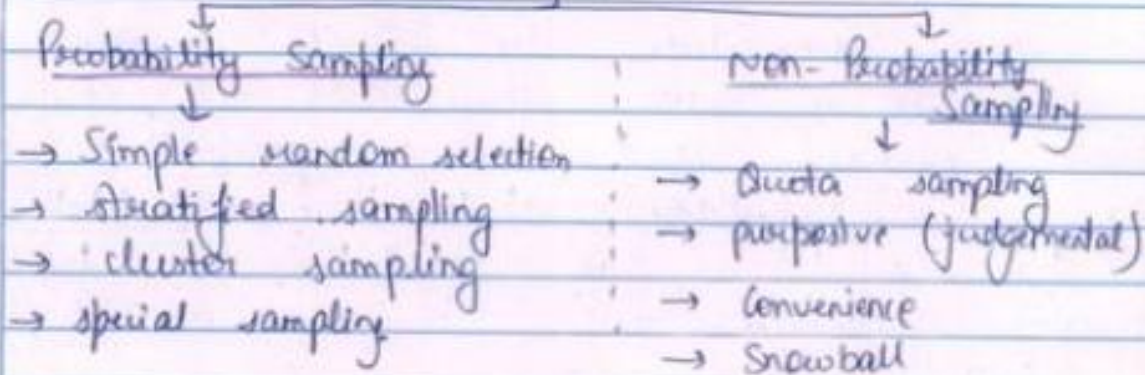 Probability Sampling
→ Simple random selection
→ stratified sampling
→ cluster sampling
→ special sampling
Non-Probability
Sampling
→ Quota sampling
→ purposive (judgemental)
→ Convenience
→ Snowball